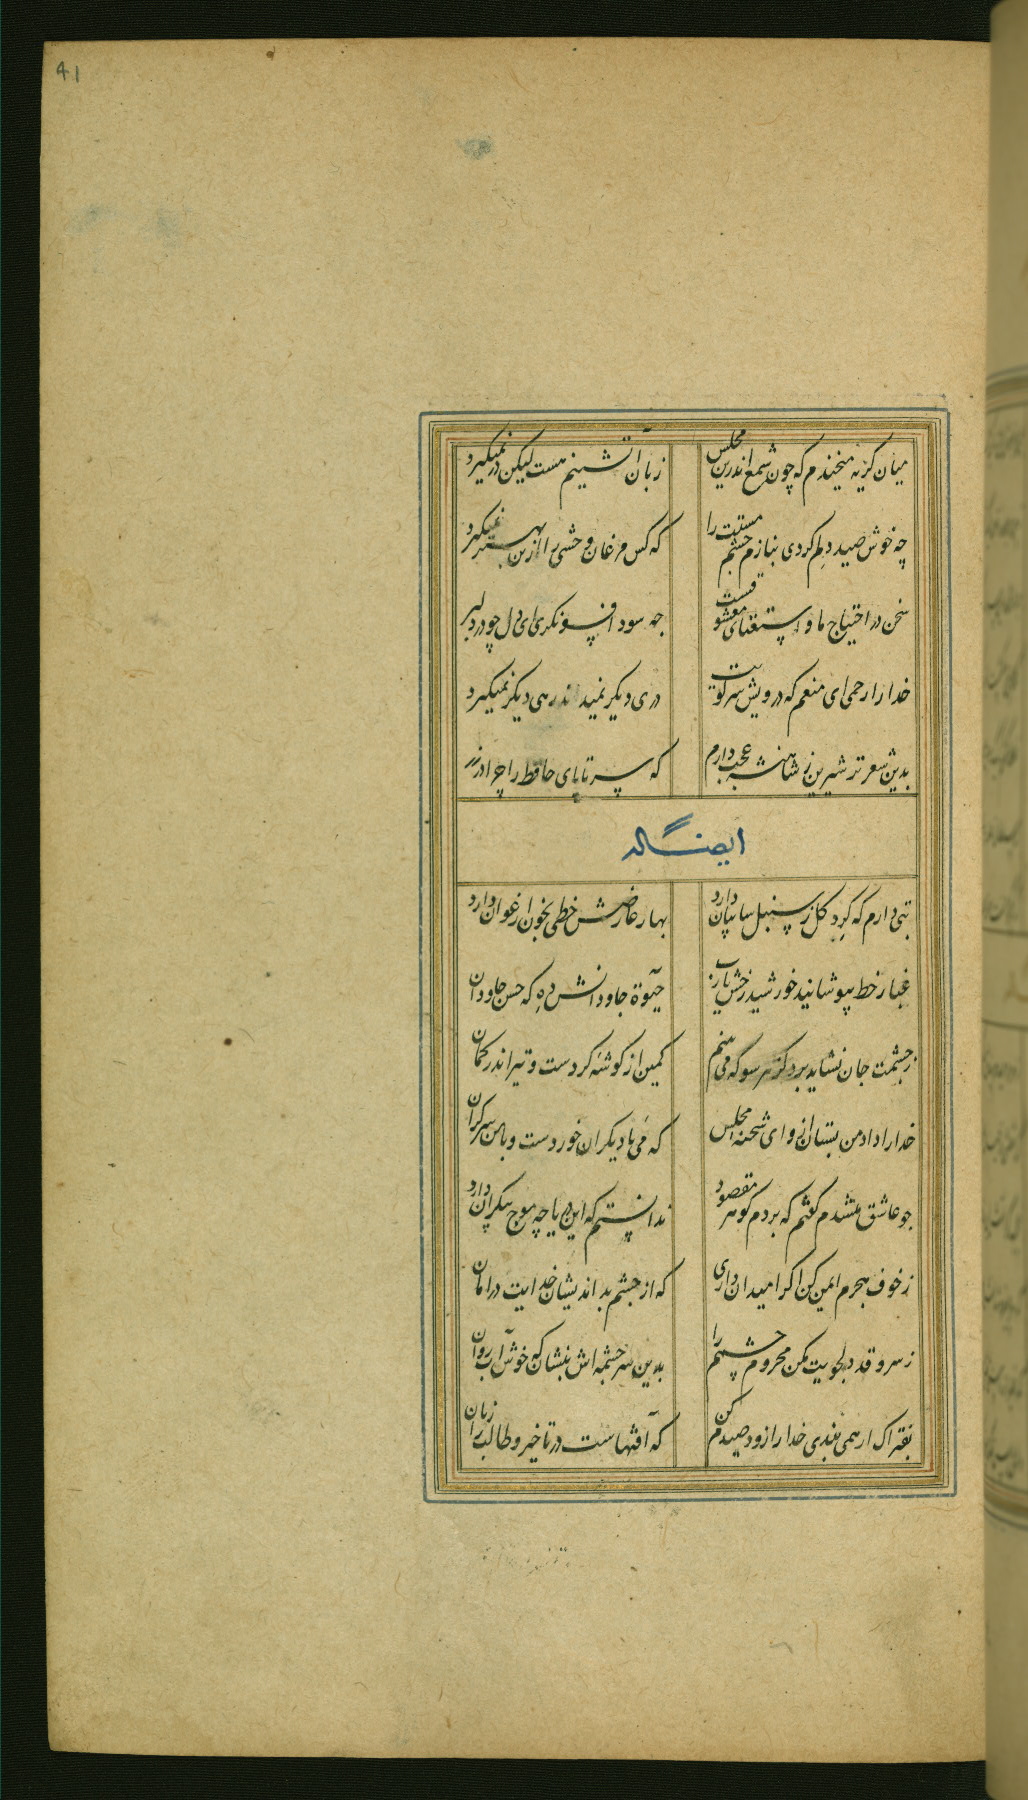 41
میان گریه میخندم که چون شمع اندرین مجلس
زبان آتشینم هست لیکن در نمیگیرد
چه خوش صید دلم کردی بنازم چشم مستت را
که کس مرغان وحشی را ازین بهتر نمیگیرد
سخن در احتیاج ما و استغنای معشوقست
چه سود افسونگری ای دل چو در دلبر
خدا را رحمی ای منعم که درویش سر کویت
دری دیگر نمیداند رهی دیگر نمیگیرد
بدین شعر تر شیرین ز شاهنشه عجب دارم
که سر تا پای حافظ را چرا در زر
ایضاً له
بتی دارم که گرد گل ز سنبل سایبان دارد
بهار عارضش خطی بخون ارغوان دارد
غبار خط بپوشانید خورشید رخش یا رب
حیوة جاودانش ده که حسن جاودان
ز چشمت جان نشاید برد کز هر سو که می بینم
کمین از گوشه کردست و تیر اندر کمان
خدا را داد من بستان ازو ای شحنه مجلس
که می با دیگران خوردست و با من سر گران
چو عاشق میشدم گفتم که بردم گوهر مقصود
ندانستم که این دریا چه موج بیکران دارد
ز خوف هجرم ایمن کن اگر امید ان داری
که از چشم بد اندیشان خدایت در امان
ز سرو قد دلجویت مکن محروم چشمم را
بدین سرچشمه اش بنشان که خوش آب روان
بفتراک ار همی بندی خدا را زود صیدم کن
که آفتهاست در تاخیر و طالب را زیان